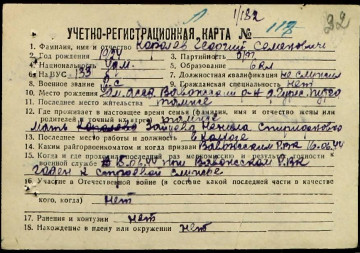 1/182
22
УЧЕТНО-РЕГИСТРАЦИОННАЯ КАРТА № 118
1. Фамилия, имя и отчество Ковалев Георгий Семенович
2. Год рождения 1927 3. Партийность б/п
4. Национальность 5. Образование 6 кл
6. № ВУС 133 7. Должностная квалификация не служил
8. Военное звание 9. Гражданская специальность нет
10. Место рождения Вавожский р-н
11. Последнее место жительства тоже
12. Где проживает в настоящее время семья (фамилия, имя и отчество жены или
родителей и точный адрес) Вотинск
Мать Зайцева
13. Последнее место работы и должность в колхозе
14. Каким райгорвоенкоматом и когда призван Вавожским РВК 16.06.44
15. Когда и где проходил последний раз медкомиссию и результат годности к
военной службе 15.06.44 при Вавожском РВК
годен к строевой службе
16. Участие в Отечественной войне (в составе какой последней части в качестве
кого, когда) нет
17. Ранения и контузии нет
18. Нахождение в плену или окружении нет